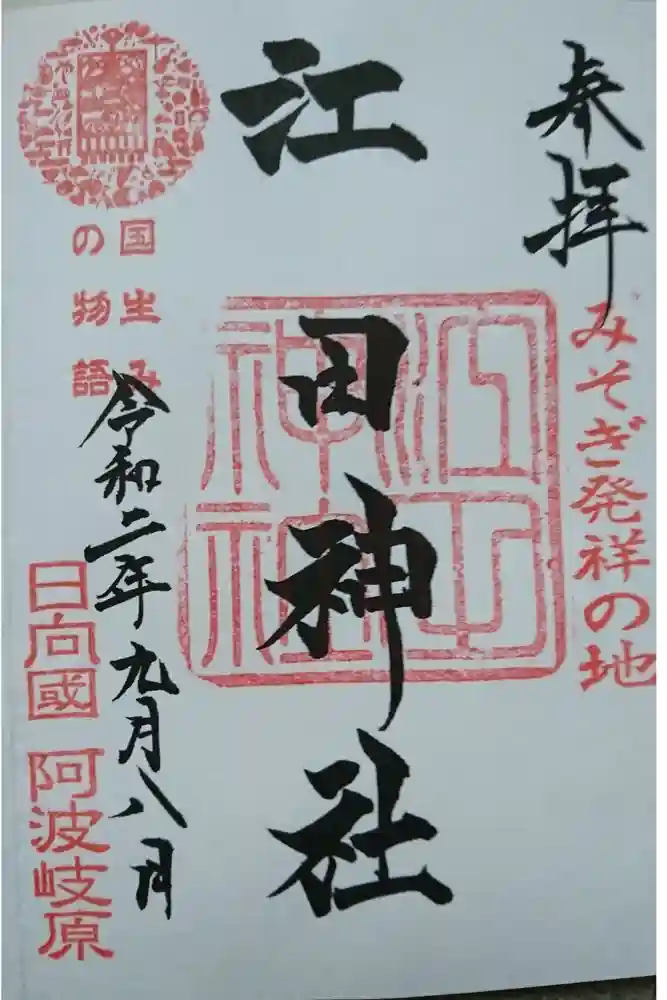 奉拝
みそぎ発祥の地
江田神社
国生み
の物語
令和二年九月八日
日向國 阿波岐原